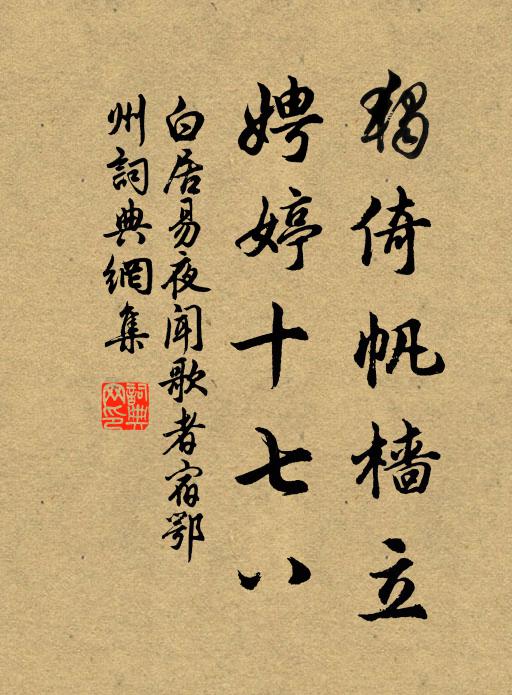 獨倚帆檣立
娉婷十七八
白居易夜聞歌者宿鄂
州詞典網集
詞典網印